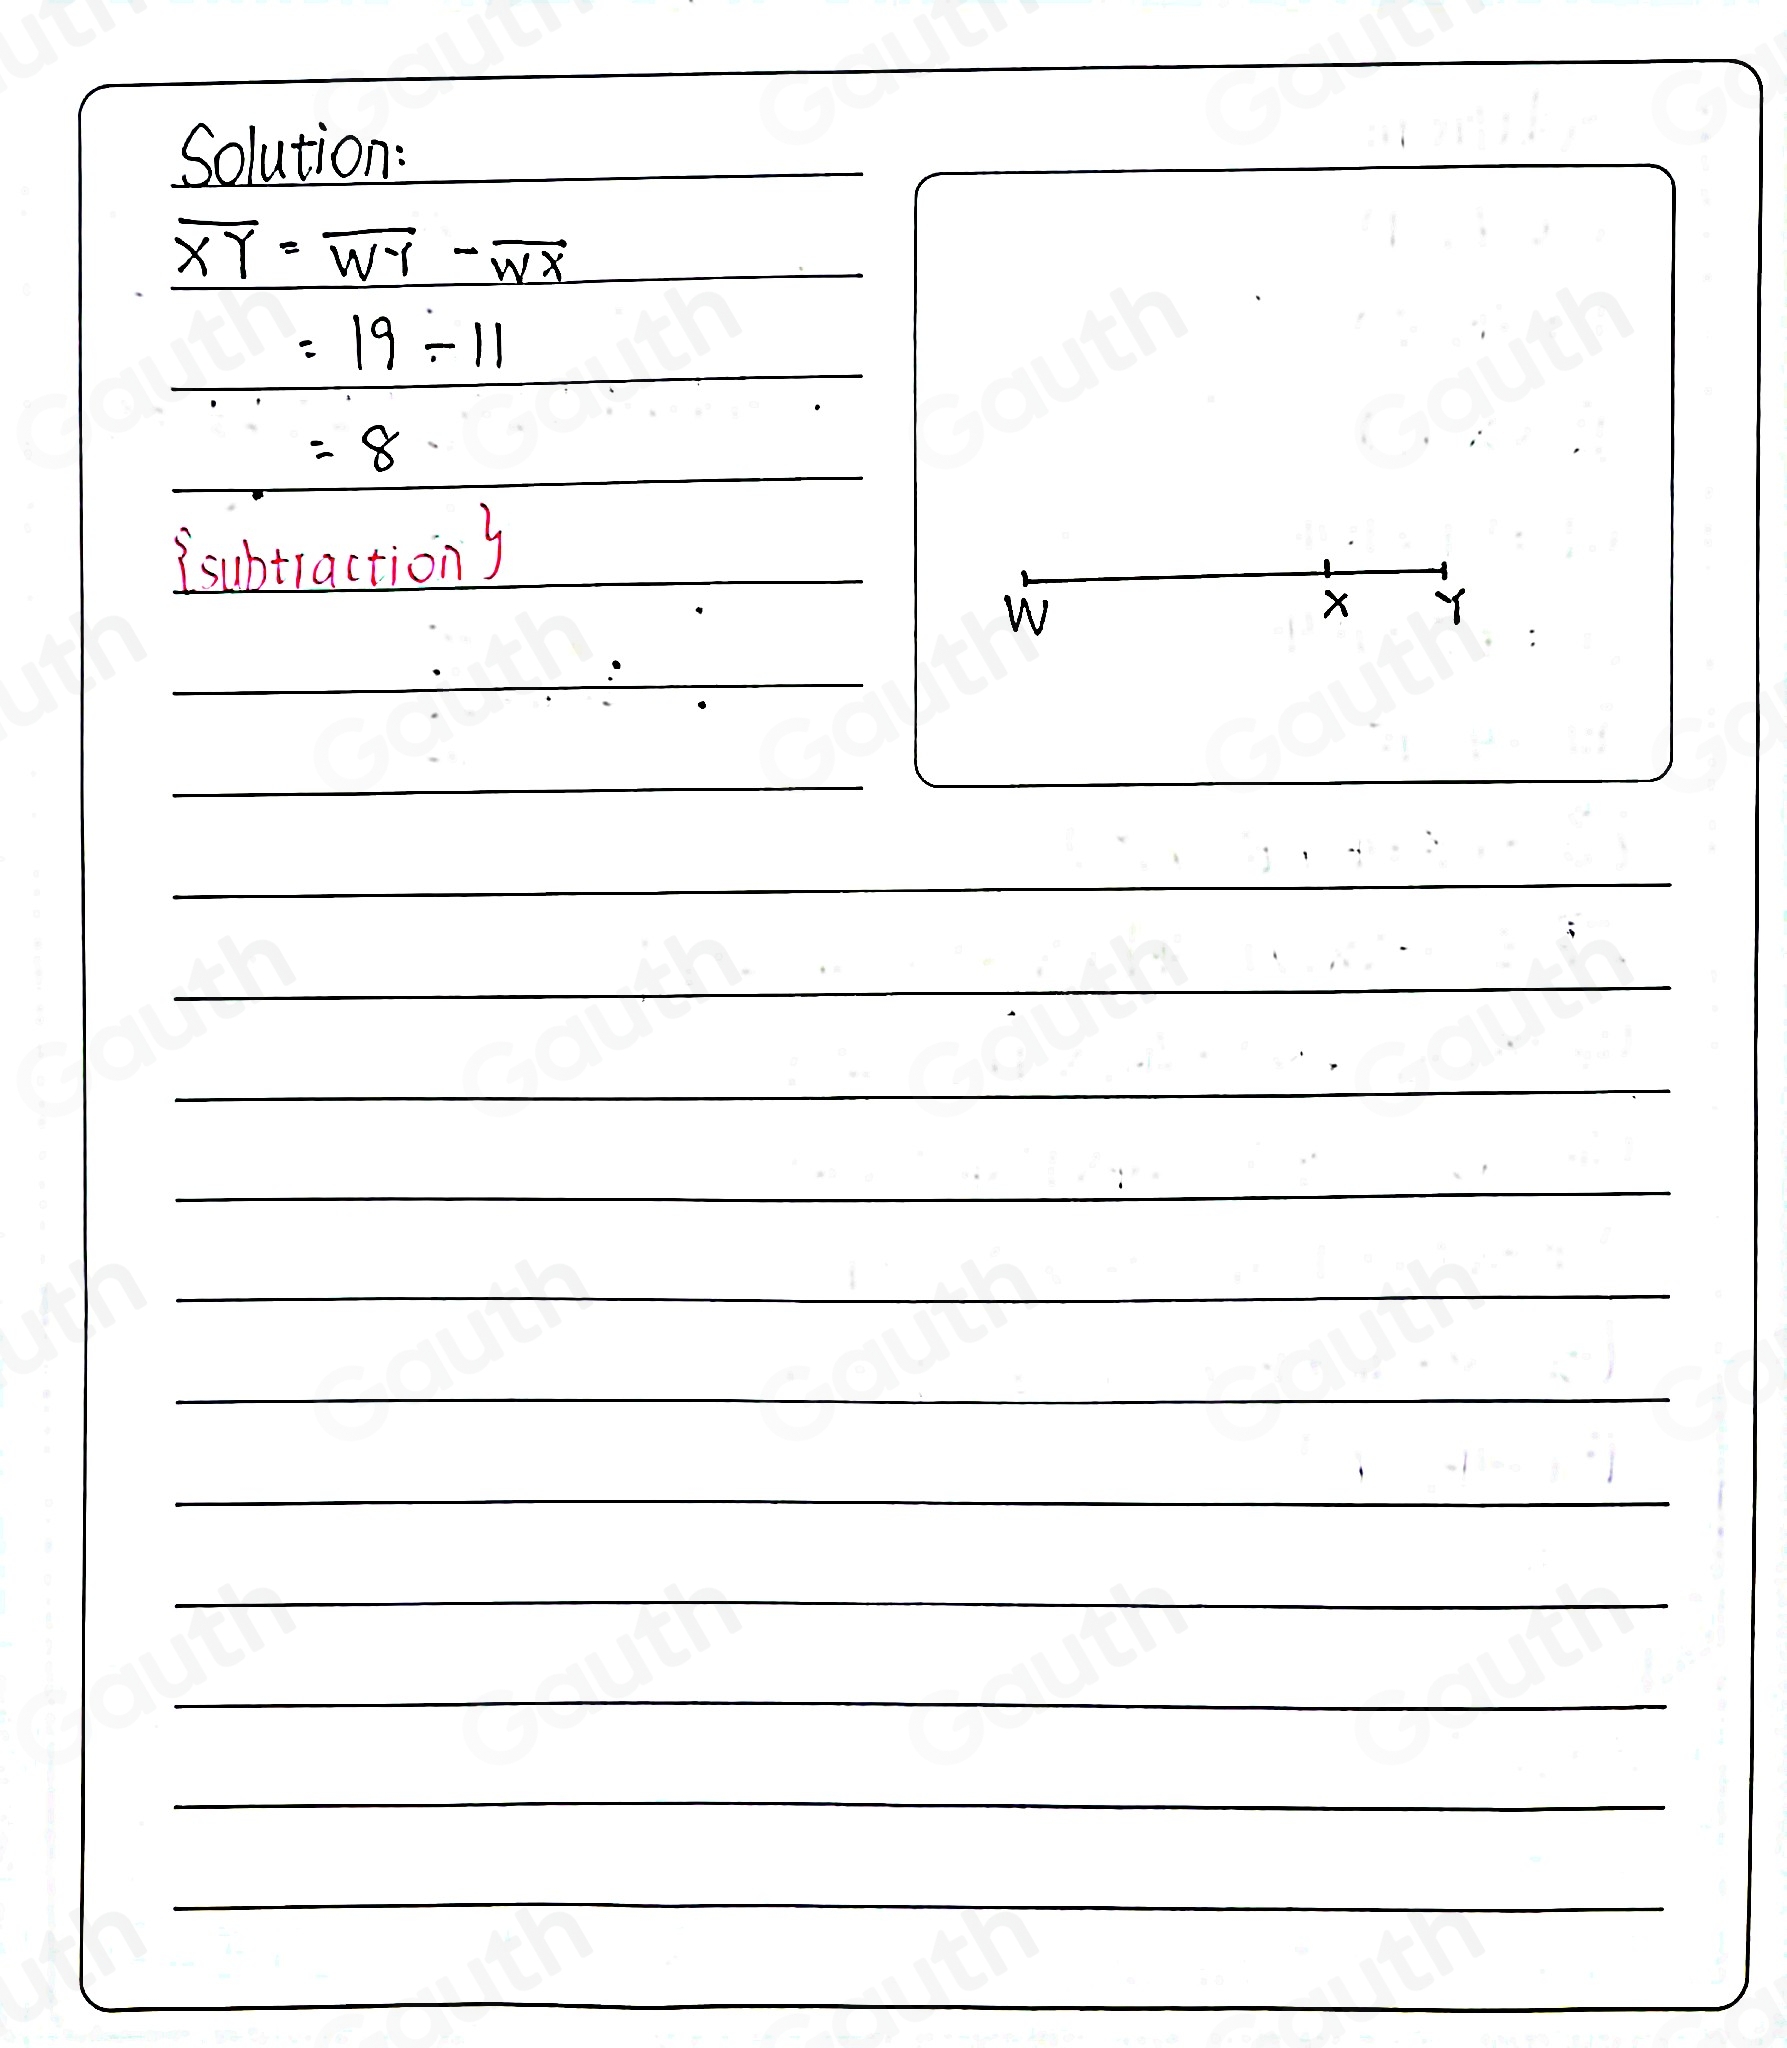 Solution:
XY = WY - WX
= 19 ÷ 11
= 8
{subtraction}
W X Y
Gauth